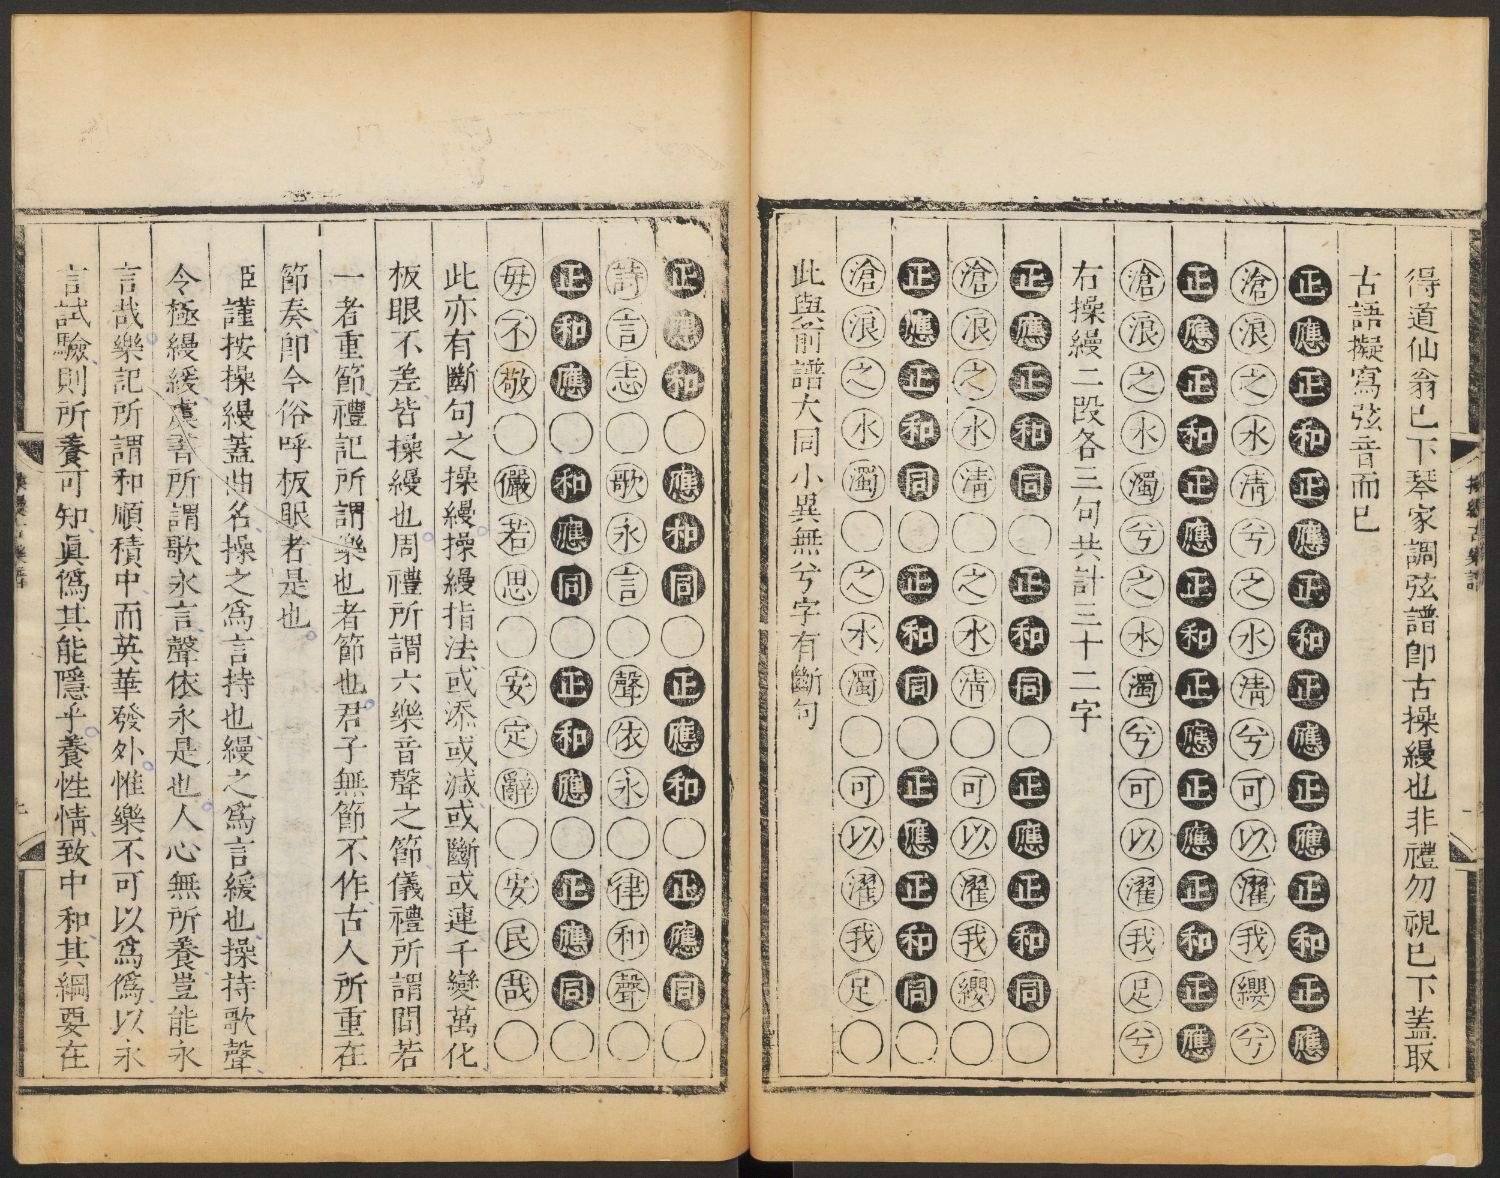 得道仙翁已下琴家調弦譜卽古操縵也非禮勿視已下蓋取
古語擬寫弦音而已
正應正和正應正和正應正應正和正應
滄浪之水清兮之水清兮可以濯我纓兮
正應正和正應正和正應正應正和正應
滄浪之水濁兮之水濁兮可以濯我足兮
右操縵二段各三句共計三十二字
正應正和同○正和同○正應正和同○
滄浪之水清○之水清○可以濯我纓○
正應正和同○正和同○正應正和同○
滄浪之水濁○之水濁○可以濯我足○
此與前譜大同小異無兮字有斷句
正應和○應和同○正應和○正應同○
詩言志○歌永言○聲依永○律和聲○
正和應○和應同○正和應○正應同○
毋不敬○儼若思○安定辭○安民哉○
此亦有斷句之操縵操縵指法或添或減或斷或連千變萬化
板眼不差皆操縵也周禮所謂六樂音聲之節儀禮所謂間若
一者重節禮記所謂樂也者節也君子無節不作古人所重在
節奏卽今俗呼板眼者是也
臣謹按操縵蓋曲名操之爲言持也縵之爲言緩也操持歌聲
令極縵緩虞書所謂歌永言聲依永是也人心無所養豈能永
言哉樂記所謂和順積中而英華發外惟樂不可以爲僞以永
言試驗則所養可知眞僞其能隱乎養性情致中和其綱要在